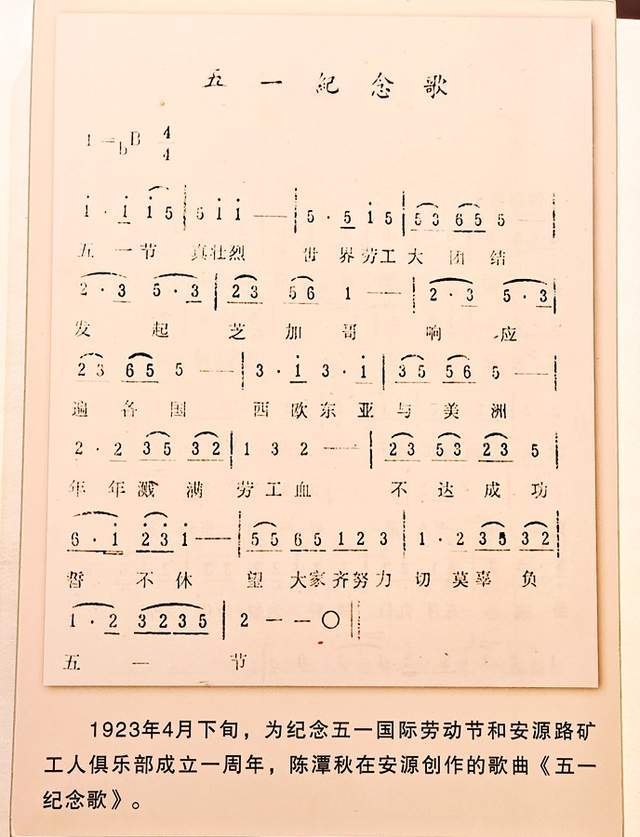 五一纪念歌
1=bB 4/4
1·1 15 | 511 — | 5·5 15 | 53 65 5 —
五一节 真壮烈 世界劳工大团结
2·3 5·3 | 23 56 1 — | 2·3 5·3 |
发起芝加哥响应
23 65 5 — | 3·1 3·1 | 35 56 5 — |
遍各国 西欧东亚与美洲
2·2 35 32 | 1 3 2 — | 23 53 23 5 |
年年溅满劳工血 不达成功
6·1 231 — | 55 65 123 | 1·2 35 32 |
誓不休 望大家齐努力切莫辜负
1·2 3235 | 2 — — ○ |
五一节
1923年4月下旬，为纪念五一国际劳动节和安源路矿
工人俱乐部成立一周年，陈潭秋在安源创作的歌曲《五一
纪念歌》。